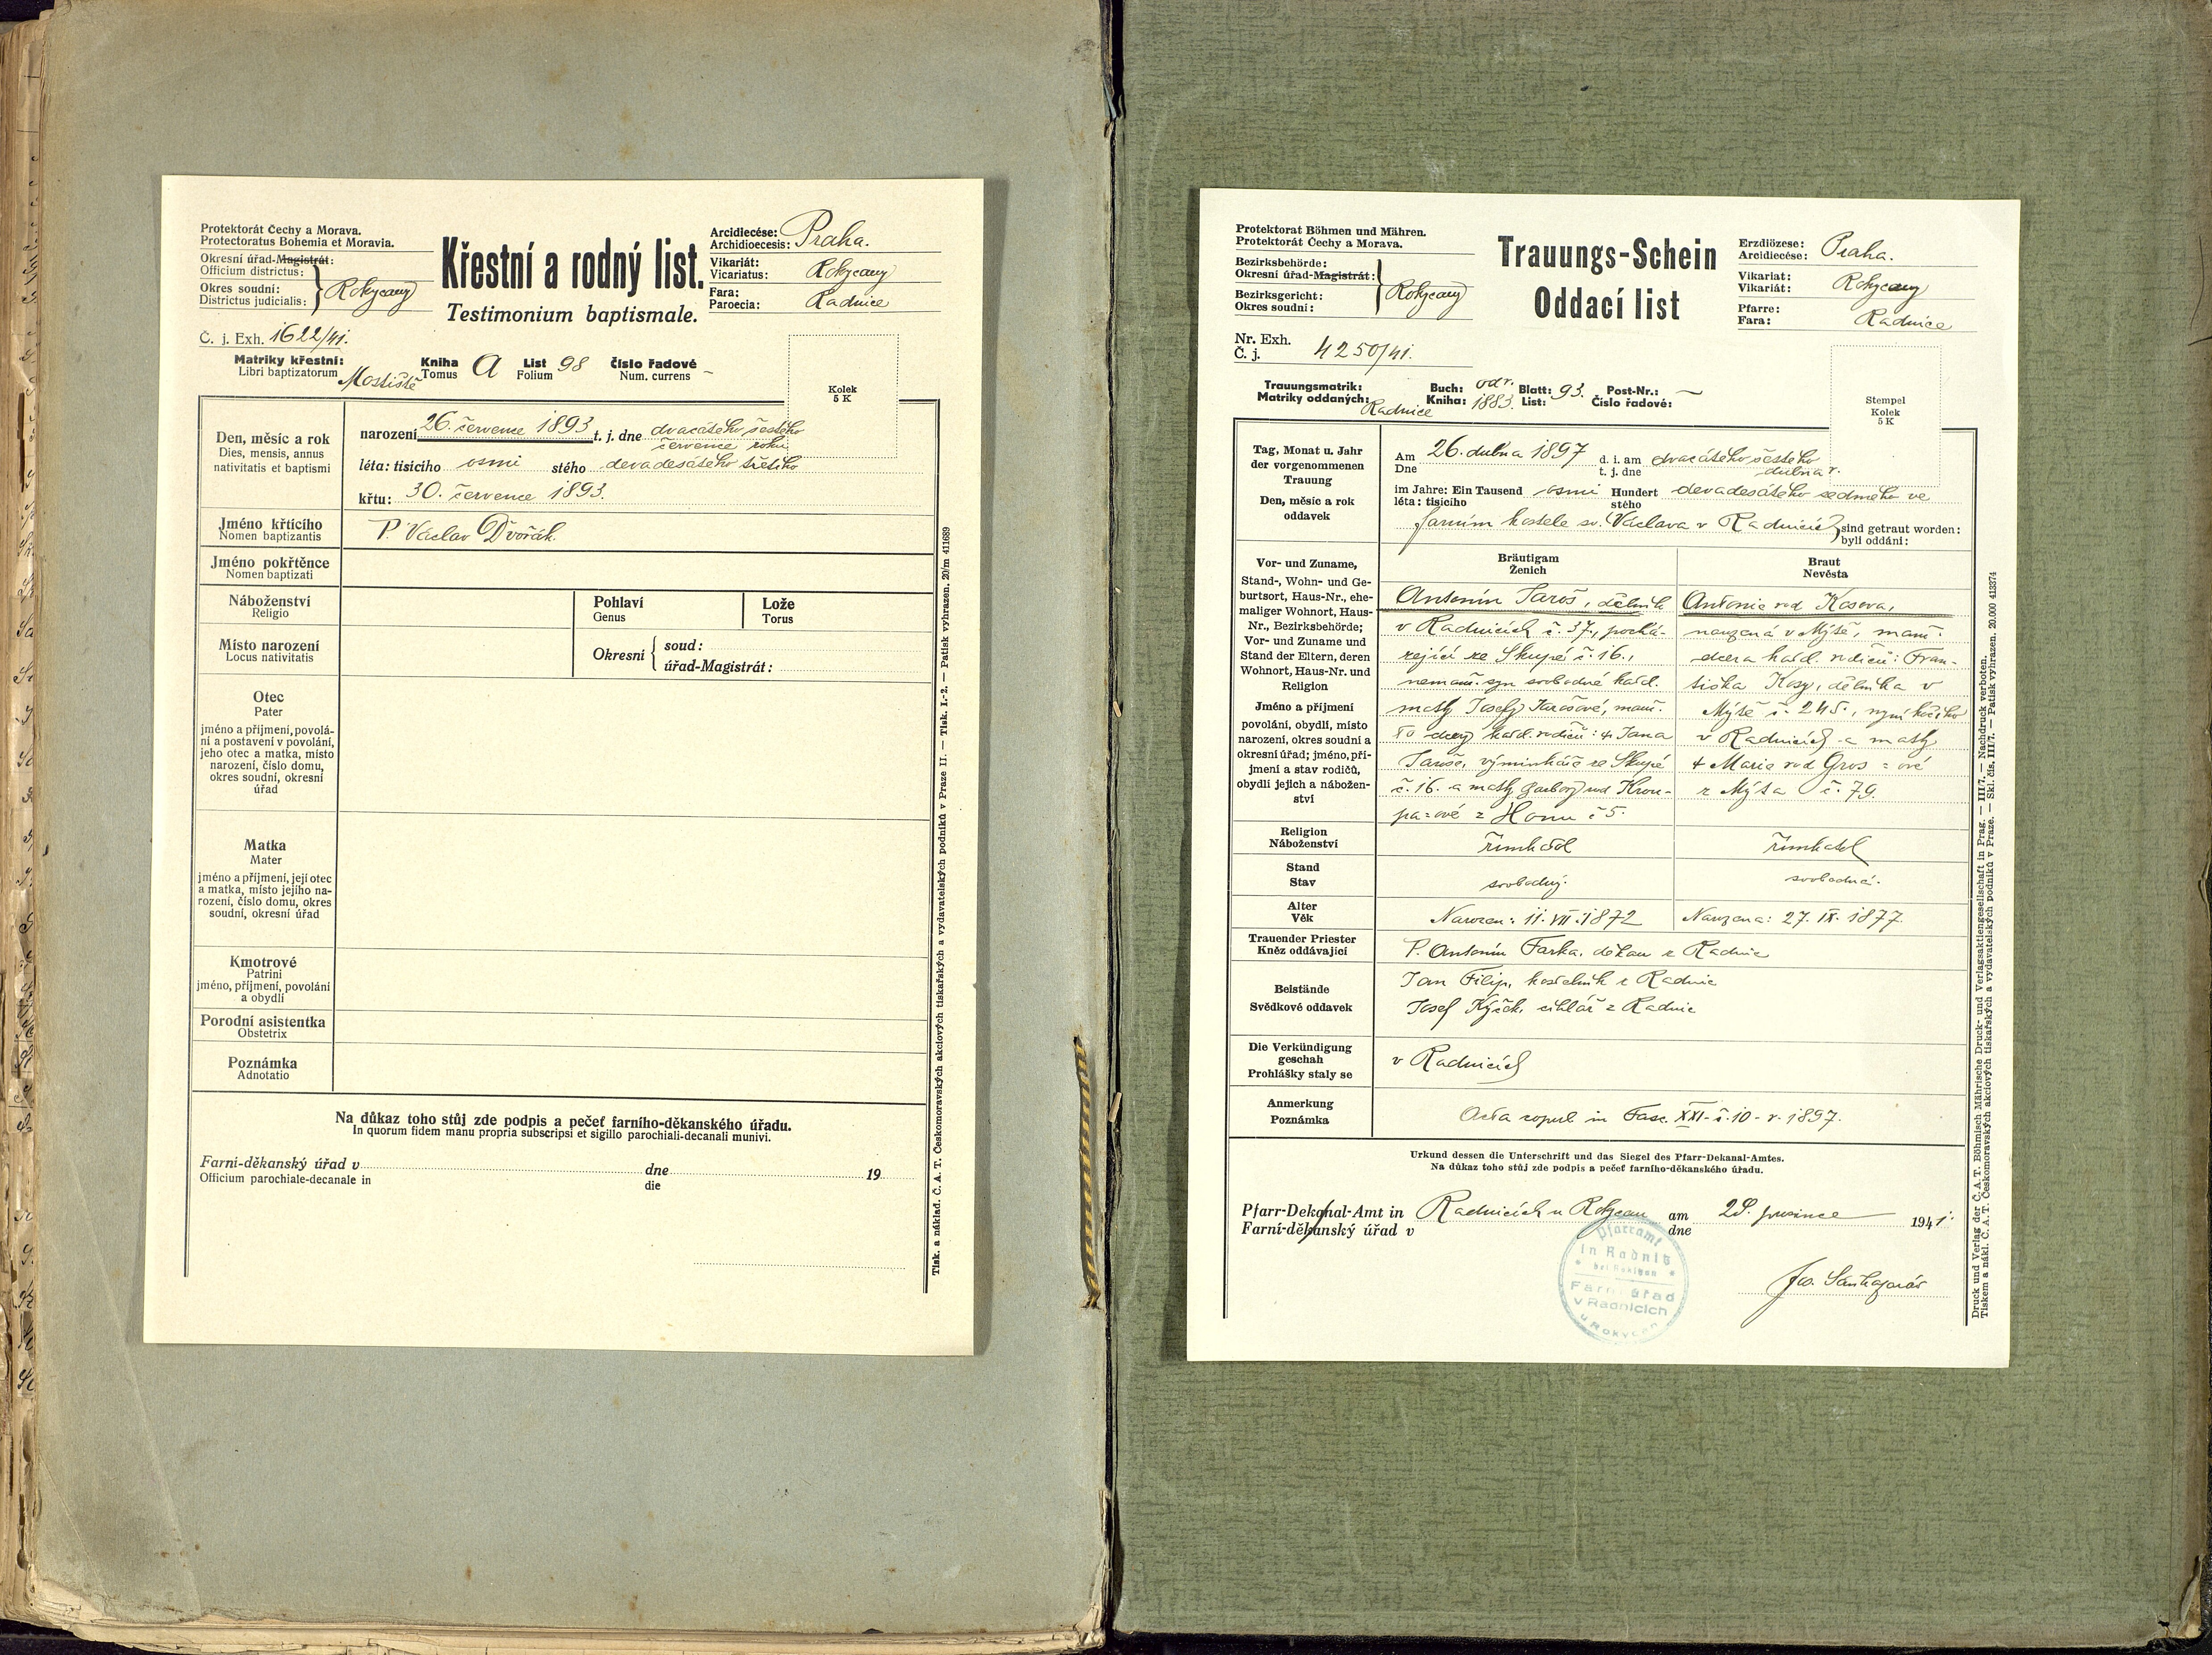 Protektorát Čechy a Morava.
Protectoratus Bohemia et Moravia.
Okresní úřad-Magistrát:
Officium districtus:
Okres soudní:
Districtus judicialis:
Rokycany
Křestní a rodný list.
Testimonium baptismale.
Arcidiecése: Praha.
Archidioecesis:
Vikariát: Rokycany
Vicariatus:
Fara: Radnice
Paroecia:
Č. j. Exh. 1622/41.
Matriky křestní: Mostiště
Libri baptizatorum
Kniha A List 98 Číslo řadové –
Tomus Folium Num. currens
Kolek
5 K
Den, měsíc a rok
Dies, mensis, annus
nativitatis et baptismi
narození 26. července 1893 t. j. dne dvacátého šestého
července roku
léta: tisícího osmi stého devadesátého třetího
křtu: 30. července 1893.
Jméno křticího
Nomen baptizantis
P. Václav Dvořák.
Jméno pokřtěnce
Nomen baptizati
Náboženství
Religio
Pohlaví
Genus
Lože
Torus
Místo narození
Locus nativitatis
Okresní
soud:
úřad-Magistrát:
Otec
Pater
jméno a příjmení, povolá-
ní a postavení v povolání,
jeho otec a matka, místo
narození, číslo domu,
okres soudní, okresní
úřad
Matka
Mater
jméno a příjmení, její otec
a matka, místo jejího na-
rození, číslo domu, okres
soudní, okresní úřad
Kmotrové
Patrini
jméno, příjmení, povolání
a obydlí
Porodní asistentka
Obstetrix
Poznámka
Adnotatio
Na důkaz toho stůj zde podpis a pečeť farního-děkanského úřadu.
In quorum fidem manu propria subscripsi et sigillo parochiali-decanali munivi.
Farní-děkanský úřad v dne 19
Officium parochiale-decanale in die
Tisk. a náklad. Č. A. T. Českomoravských akciových tiskařských a vydavatelských podniků v Praze II. — Tisk. I.-2. — Patisk vyhrazen. 20/m 411689
Protektorat Böhmen und Mähren.
Protektorát Čechy a Morava.
Bezirksbehörde:
Okresní úřad-Magistrát:
Bezirksgericht:
Okres soudní:
Rokycany
Trauungs-Schein
Oddací list
Erzdiözese: Praha.
Arcidiecése:
Vikariat: Rokycany
Vikariát:
Pfarre: Radnice
Fara:
Nr. Exh.
Č. j. 4250/41.
Trauungsmatrik:
Matriky oddaných: Radnice
Buch: odr. Blatt: 93. Post-Nr.: –
Kniha: 1883. List: Číslo řadové:
Stempel
Kolek
5 K
Tag, Monat u. Jahr
der vorgenommenen
Trauung
Den, měsíc a rok
oddavek
Am 26. dubna 1897 d. i. am dvacátého šestého
Dne t. j. dne dubna r.
im Jahre: Ein Tausend osmi Hundert devadesátého sedmého ve
léta: tisícího stého
farním kostele sv. Václava v Radnicích sind getraut worden:
byli oddáni:
Vor- und Zuname,
Stand-, Wohn- und Ge-
burtsort, Haus-Nr., ehe-
maliger Wohnort, Haus-
Nr., Bezirksbehörde;
Vor- und Zuname und
Stand der Eltern, deren
Wohnort, Haus-Nr. und
Religion
Jméno a příjmení
povolání, obydlí, místo
narození, okres soudní a
okresní úřad; jméno, pří-
jmení a stav rodičů,
obydlí jejich a nábožen-
ství
Bräutigam
Ženich
Antonín Jaroš, dělník
v Radnicích č. 37., pochá-
zející ze Skupé č. 16.,
nemanž. syn svobodné katol.
matky Josefy Jarošové, manž.
to dcery katol. rodičů: † Jana
Jaroše, výminkáře ze Skupé
č. 16. a matky Barbory rod Krou-
pa=ové z Homu č 5.
Braut
Nevěsta
Antonie rod Kosova,
narozená v Mýtě, manž.
dcera katol. rodičů: Fran-
tiška Kosy, dělníka v
Mýtě č. 245., nyní kočího
v Radnicích a matky
† Marie rod Gros=ové
z Mýta č. 79.
Religion
Náboženství
římkatol
římkatol
Stand
Stav
svobodný.
svobodná.
Alter
Věk
Narozen: 11. VII. 1872
Narozena: 27. IX. 1877.
Trauender Priester
Kněz oddávající
P. Antonín Farka, děkan z Radnic
Beistände
Svědkové oddavek
Jan Filip, kostelník z Radnic
Josef cihlář z Radnic
Die Verkündigung
geschah
Prohlášky staly se
v Radnicích
Anmerkung
Poznámka
Acta copul in Fasc. XXI - č. 10 - r. 1897.
Urkund dessen die Unterschrift und das Siegel des Pfarr-Dekanal-Amtes.
Na důkaz toho stůj zde podpis a pečeť farního-děkanského úřadu.
Pfarr-Dekanal-Amt in Radnicích u Rokycan am 28. prosince 1941.
Farní-děkanský úřad v dne
Pfarramt
in Radnitz
bei Rokitzan
Farní úřad
v Radnicích
u Rokycan
Druck und Verlag der Č. A. T. Böhmisch Mährische Druck- und Verlagsaktiengesellschaft in Prag. — III/7. — Nachdruck verboten.
Tiskem a nákl. Č. A. T. Českomoravských akciových tiskařských a vydavatelských podniků v Praze. — Skl. čís. III/7. — Patisk vyhrazen. 20.000 413374